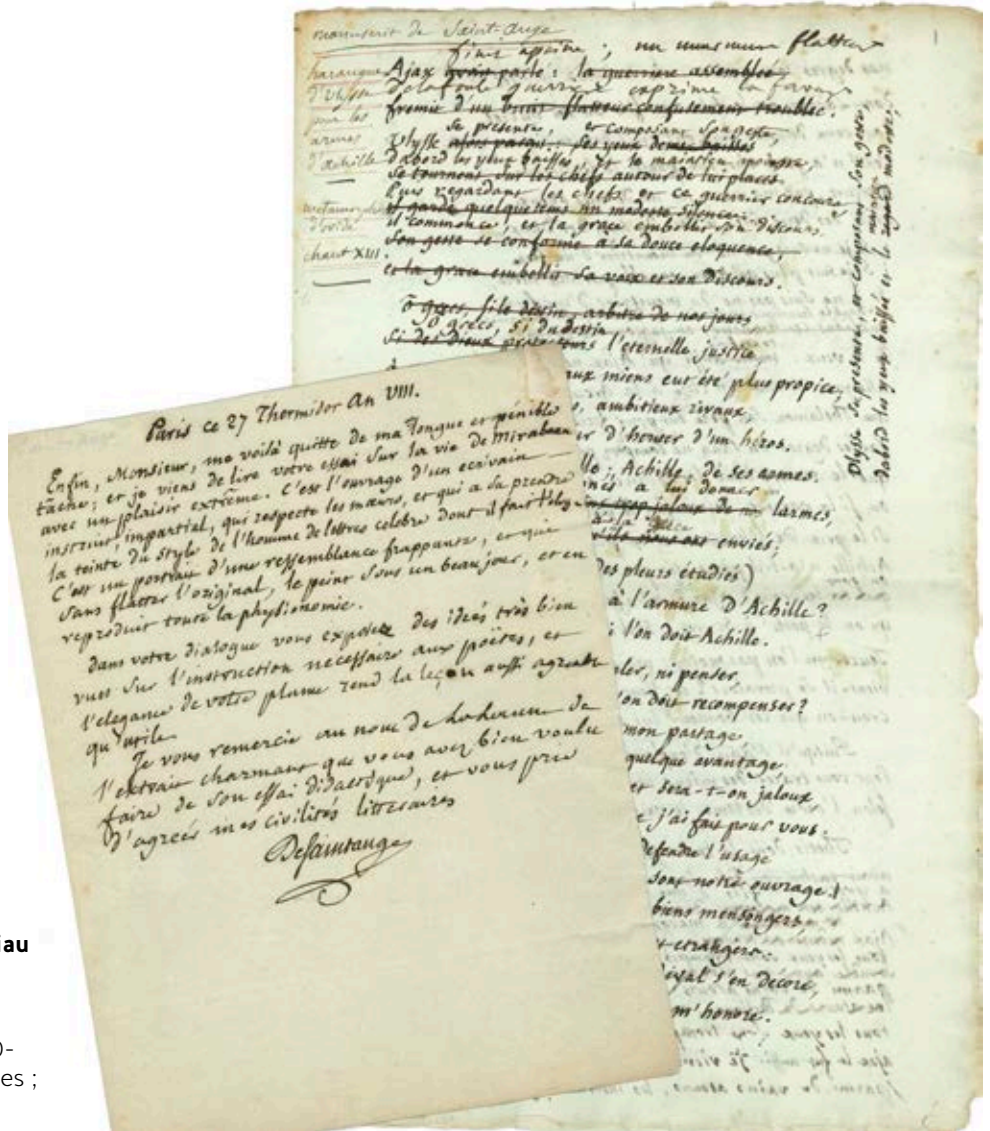 manuscrit de Saint-Ange
harangue
d'Ulysse
pour les
armes
d'achille
metamorph
d'ovide
chant XIII.
finit à peine ; un murmure flatteur
Ajax avait parlé : la guerriere assemblée,
de la foule guerriere exprime la faveur
fremit d'un bruit flatteur confusement troublée.
se présente, et composant son geste,
Ulysse alors parait : ses yeux demi baissés
d'abord les yeux baissés, et le maintien modeste,
se tournent sur les chefs autour de lui placés.
Puis regardant les chefs et ce guerrier concours
il garde quelque tems un modeste silence
il commence, et la grace embellit son discours.
Son geste se conforme à sa douce eloquence,
et la grace embellit sa voix et son discours.
ô grecs, si le destin, arbitre de nos jours
ô grecs, si du destin
si des dieux protecteurs l'eternelle justice
à
aux miens eut été plus propice,
s, ambitieux rivaux,
d'honer d'un héros.
lle ; Achille, de ses armes.
nés à lui donner
jaloux de larmes,
enviés ;
des pleurs étudiés)
à l'armure d'Achille ?
i l'on doit Achille.
ler, ni penser
'on doit recompenser ?
mon partage
quelque avantage
et sera-t-on jaloux
e j'ai fait pour vous.
defendre l'usage
sont notre ouvrage.)
biens mensongers,
etrangers.
ival s'en décore,
m'honore.
Ulysse se présente, et composant son geste,
maintien
d'abord les yeux baissés et le regard modeste,
Paris ce 27 Thermidor An VIII.
Enfin, Monsieur, me voilà quitte de ma longue et pénible
tâche ; et je viens de lire votre essai sur la vie de Mirabeau
avec un plaisir extrême. C'est l'ouvrage d'un ecrivain
instruit, impartial, qui respecte les mœurs, et qui a sa prendre
la teinte du style de l'homme de lettres celebre dont il fait l'elog
C'est un portrait d'une ressemblance frappante, et qui
sans flatter l'original, le peint sous un beau jour, et en
reproduit toute la physionomie.
dans votre dialogue vous exposez des idées très bien
vues sur l'instruction necessaire aux poëtes, et
l'elegance de votre plume rend la leçon aussi agreable
qu'utile.
Je vous remercie au nom de de
l'extrait charmant que vous avez bien voulu
faire de son essai didactique, et vous prie
d'agréer mes civilités litteraires
DeSaintange
iau
0-
es ;